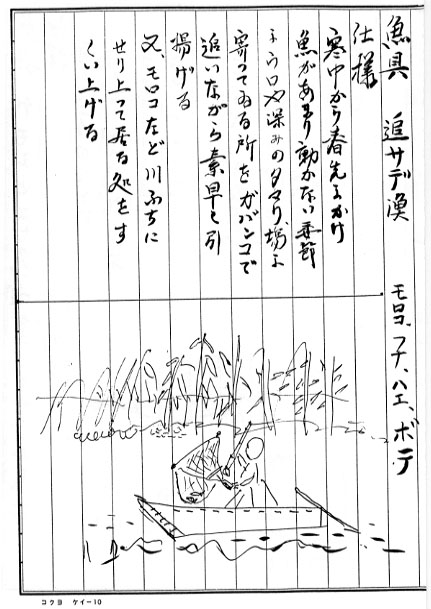 魚具　追サデ漁　モロコ、フナ、ハエ、ボテ
仕様
寒中から春先にかけ
魚があまり動かない季節
にウロや深みのタマリ場に
寄ってゐる所をガバンコで
追いながら素早く引
揚げる
又、モロコなど川ぶちに
せり上って居る処をす
くい上げる
コクヨ ケイー10